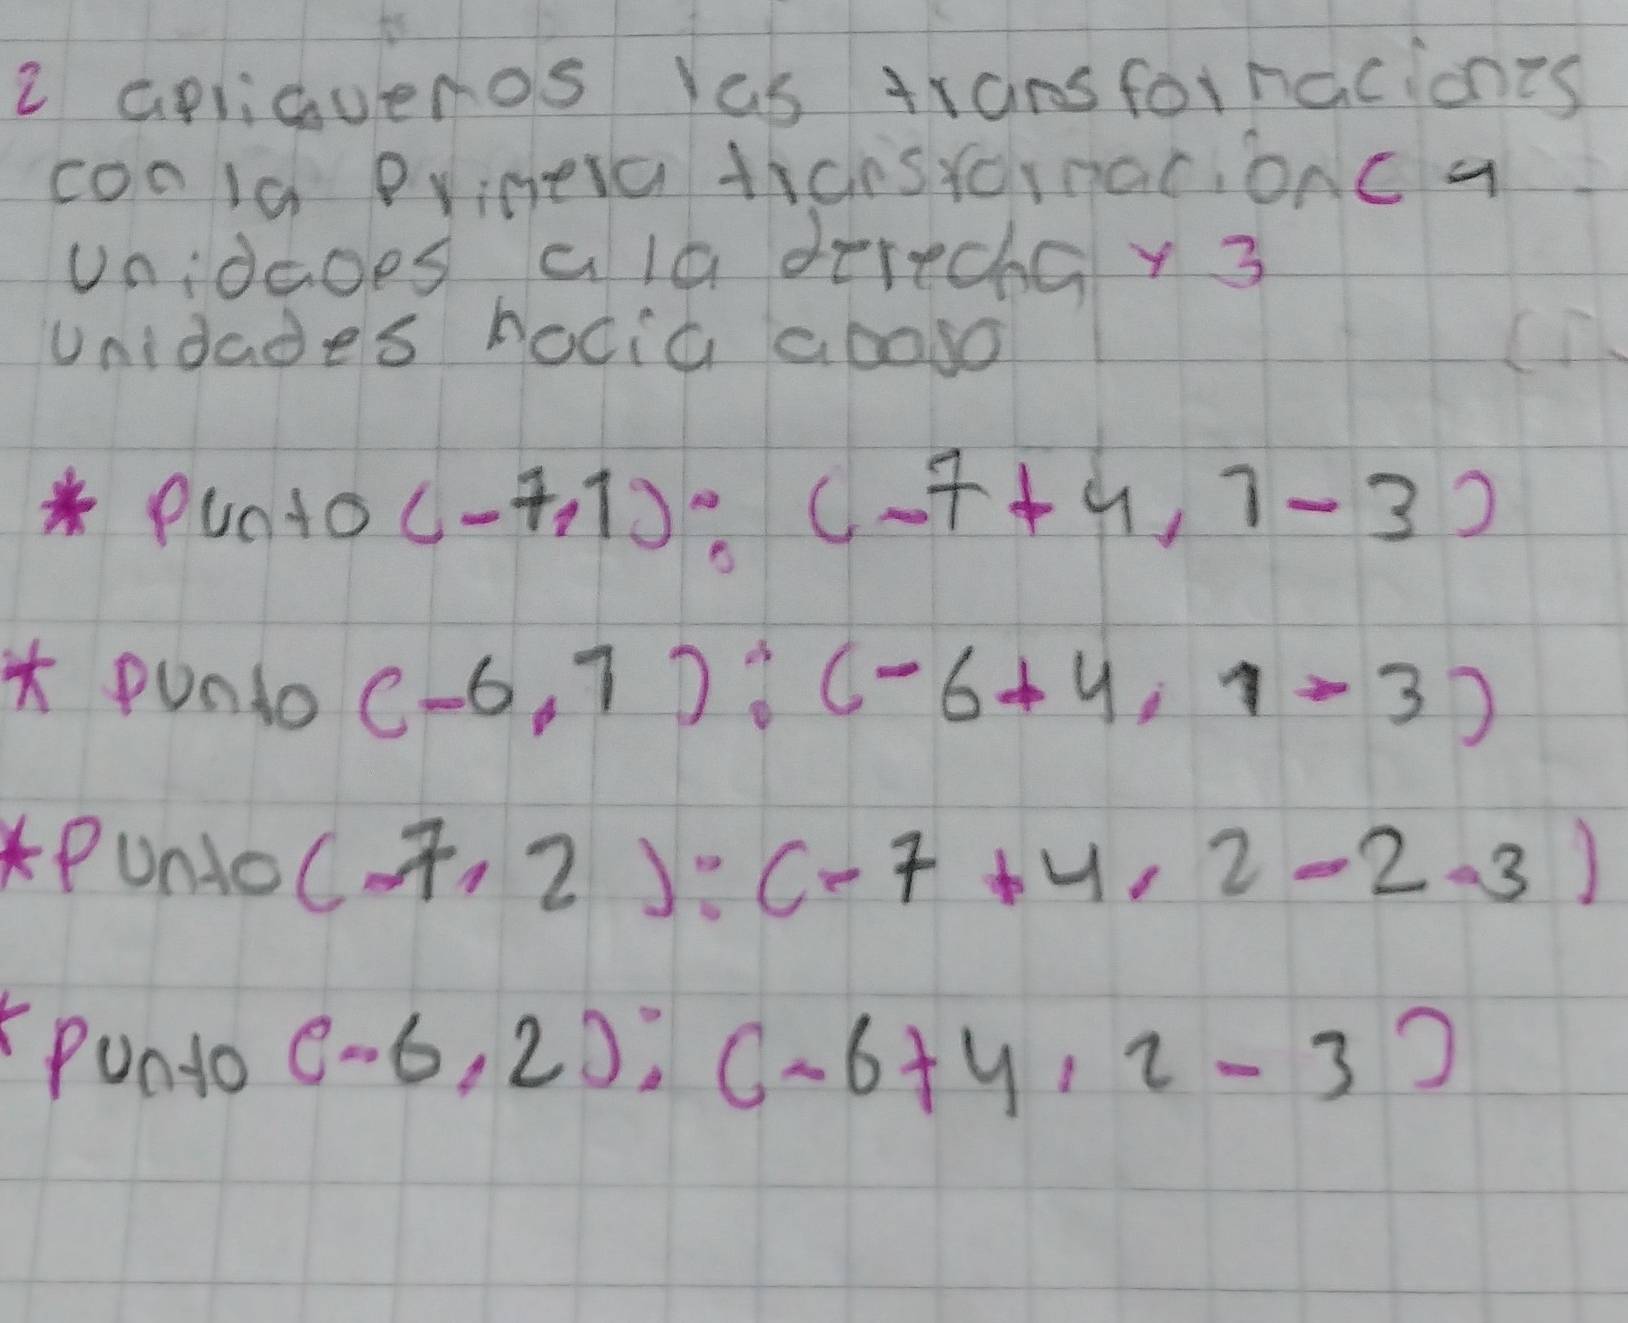 2 apliquemos las transformaciones
con la primera transformación ( 4
unidades a la derecha y 3
unidades hacia abajo
* Punto (-7,1): (-7+4, 1-3)
* punto (-6,1): (-6+4, 1-3)
* Punto (-7, 2): (-7+4, 2-2-3)
* Punto (-6,2): (-6+4, 2-3)